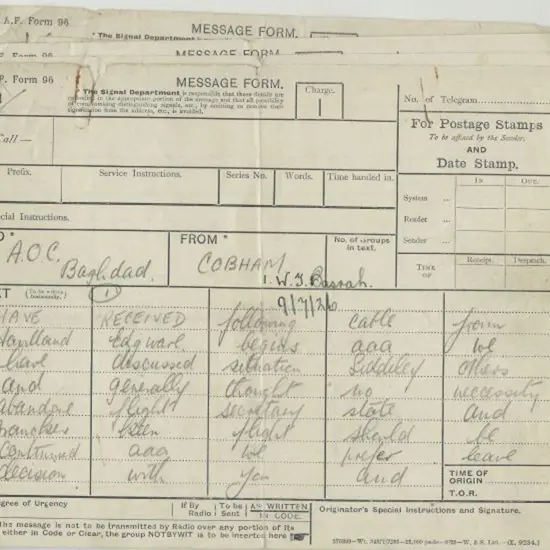 A.F. Form 96
MESSAGE FORM.
The Signal Department
Form 96
MESSAGE FORM
P. Form 96
MESSAGE FORM.
Charge.
1
"The Signal Department is responsible that these details are
in the appropriate portion of the message and that all possibility
of compromising distinguishing signals, etc., by omitting to remove their
signification from the address, etc., is avoided.
No. of Telegram
Call —
For Postage Stamps
To be affixed by the Sender.
AND
Date Stamp.
Prefix.
Service Instructions.
Series No.
Words.
Time handed in.
In
Out.
System ...
Reader ...
Sender ...
cial Instructions.
Receipt.
Despatch.
TIME
OF
A.O.C.
Baghdad
FROM *
COBHAM
No. of Groups
in text.
W.T. Basrah.
9/7/26
1
HAVE RECEIVED following cable from
Edgware begins aaa we
have discussed situation Siddeley others
and generally thought no necessity
abandone flight secretary state and
flight should be
continued aaa we prefer leave
decision with you and
TIME OF
ORIGIN
T.O.R.
egree of Urgency
If By
Radio
To be
Sent
AS WRITTEN
IN CODE.
Originator's Special Instructions and Signature.
the message is not to be transmitted by Radio over any portion of its
either in Code or Clear, the group NOTBYWIT is to be inserted here